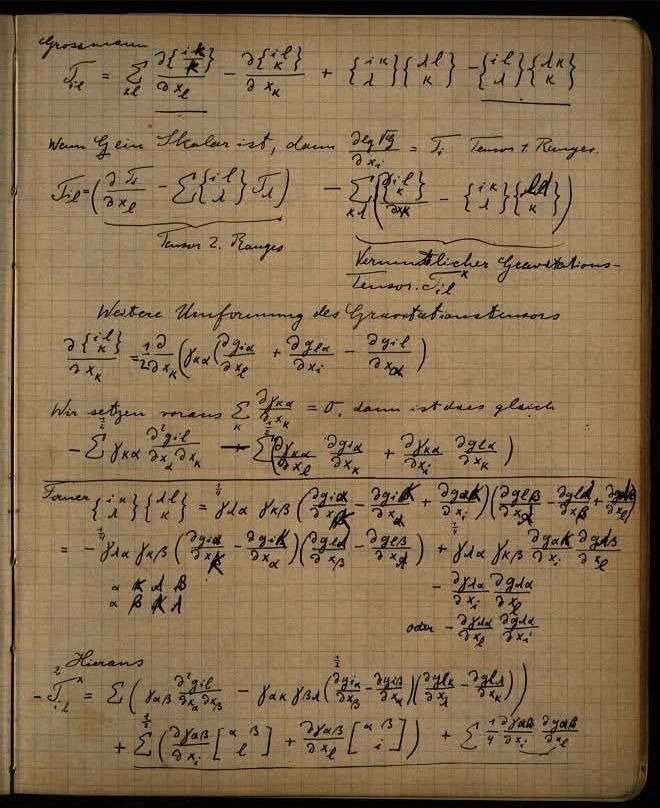 Grossmann
T_il = Σ_κl ∂{i κ / κ}/∂x_l − ∂{i l / κ}/∂x_κ + {i κ / λ}{λ l / κ} − {i l / λ}{λ κ / κ}
Wenn G ein Skalar ist, dann ∂lg√G/∂x_i = T_i Tensor 1. Ranges.
T_il = (∂T_i/∂x_l − Σ{i l / λ}T_λ) − Σ_κλ(∂{i l / κ}/∂x_κ − {i κ / λ}{λ l / κ})
Tensor 2. Ranges
Vermutlicher Gravitations-
Tensor. T_il^x
Weitere Umformung des Gravitationstensors
∂{i l / κ}/∂x_κ = 1/2 ∂/∂x_κ (γ_κα(∂g_iα/∂x_l + ∂g_lα/∂x_i − ∂g_il/∂x_α)
Wir setzen voraus Σ_κ ∂γ_κα/∂x_κ = 0, dann ist dies gleich
− 1/2 Σ γ_κα ∂²g_il/∂x_α∂x_κ + 1/2 Σ(∂γ_κα/∂x_l ∂g_iα/∂x_κ + ∂γ_κα/∂x_i ∂g_lα/∂x_κ)
Ferner {i κ / λ}{λ l / κ} = 1/4 γ_λα γ_κβ (∂g_iα/∂x_κ − ∂g_iκ/∂x_α + ∂g_ακ/∂x_i)(∂g_lβ/∂x_λ − ∂g_lλ/∂x_β + ∂g_λβ/∂x_l)
= − 1/4 γ_λα γ_κβ (∂g_iα/∂x_κ − ∂g_iκ/∂x_α)(∂g_lλ/∂x_β − ∂g_lβ/∂x_λ) + 1/4 γ_λα γ_κβ ∂g_ακ/∂x_i ∂g_λβ/∂x_l
α κ λ β
α β κ λ
− ∂γ_λα/∂x_i ∂g_λα/∂x_l
oder − ∂γ_λα/∂x_l ∂g_λα/∂x_i
Hieraus
− 2 T_il^x = Σ(γ_αβ ∂²g_il/∂x_α∂x_β − 1/2 γ_ακ γ_βλ (∂g_iα/∂x_β − ∂g_iβ/∂x_α)(∂g_lκ/∂x_λ − ∂g_lλ/∂x_κ))
+ 1/2 Σ(∂γ_αβ/∂x_i [α β / l] + ∂γ_αβ/∂x_l [α β / i]) + Σ 1/4 ∂γ_αβ/∂x_i ∂g_αβ/∂x_l